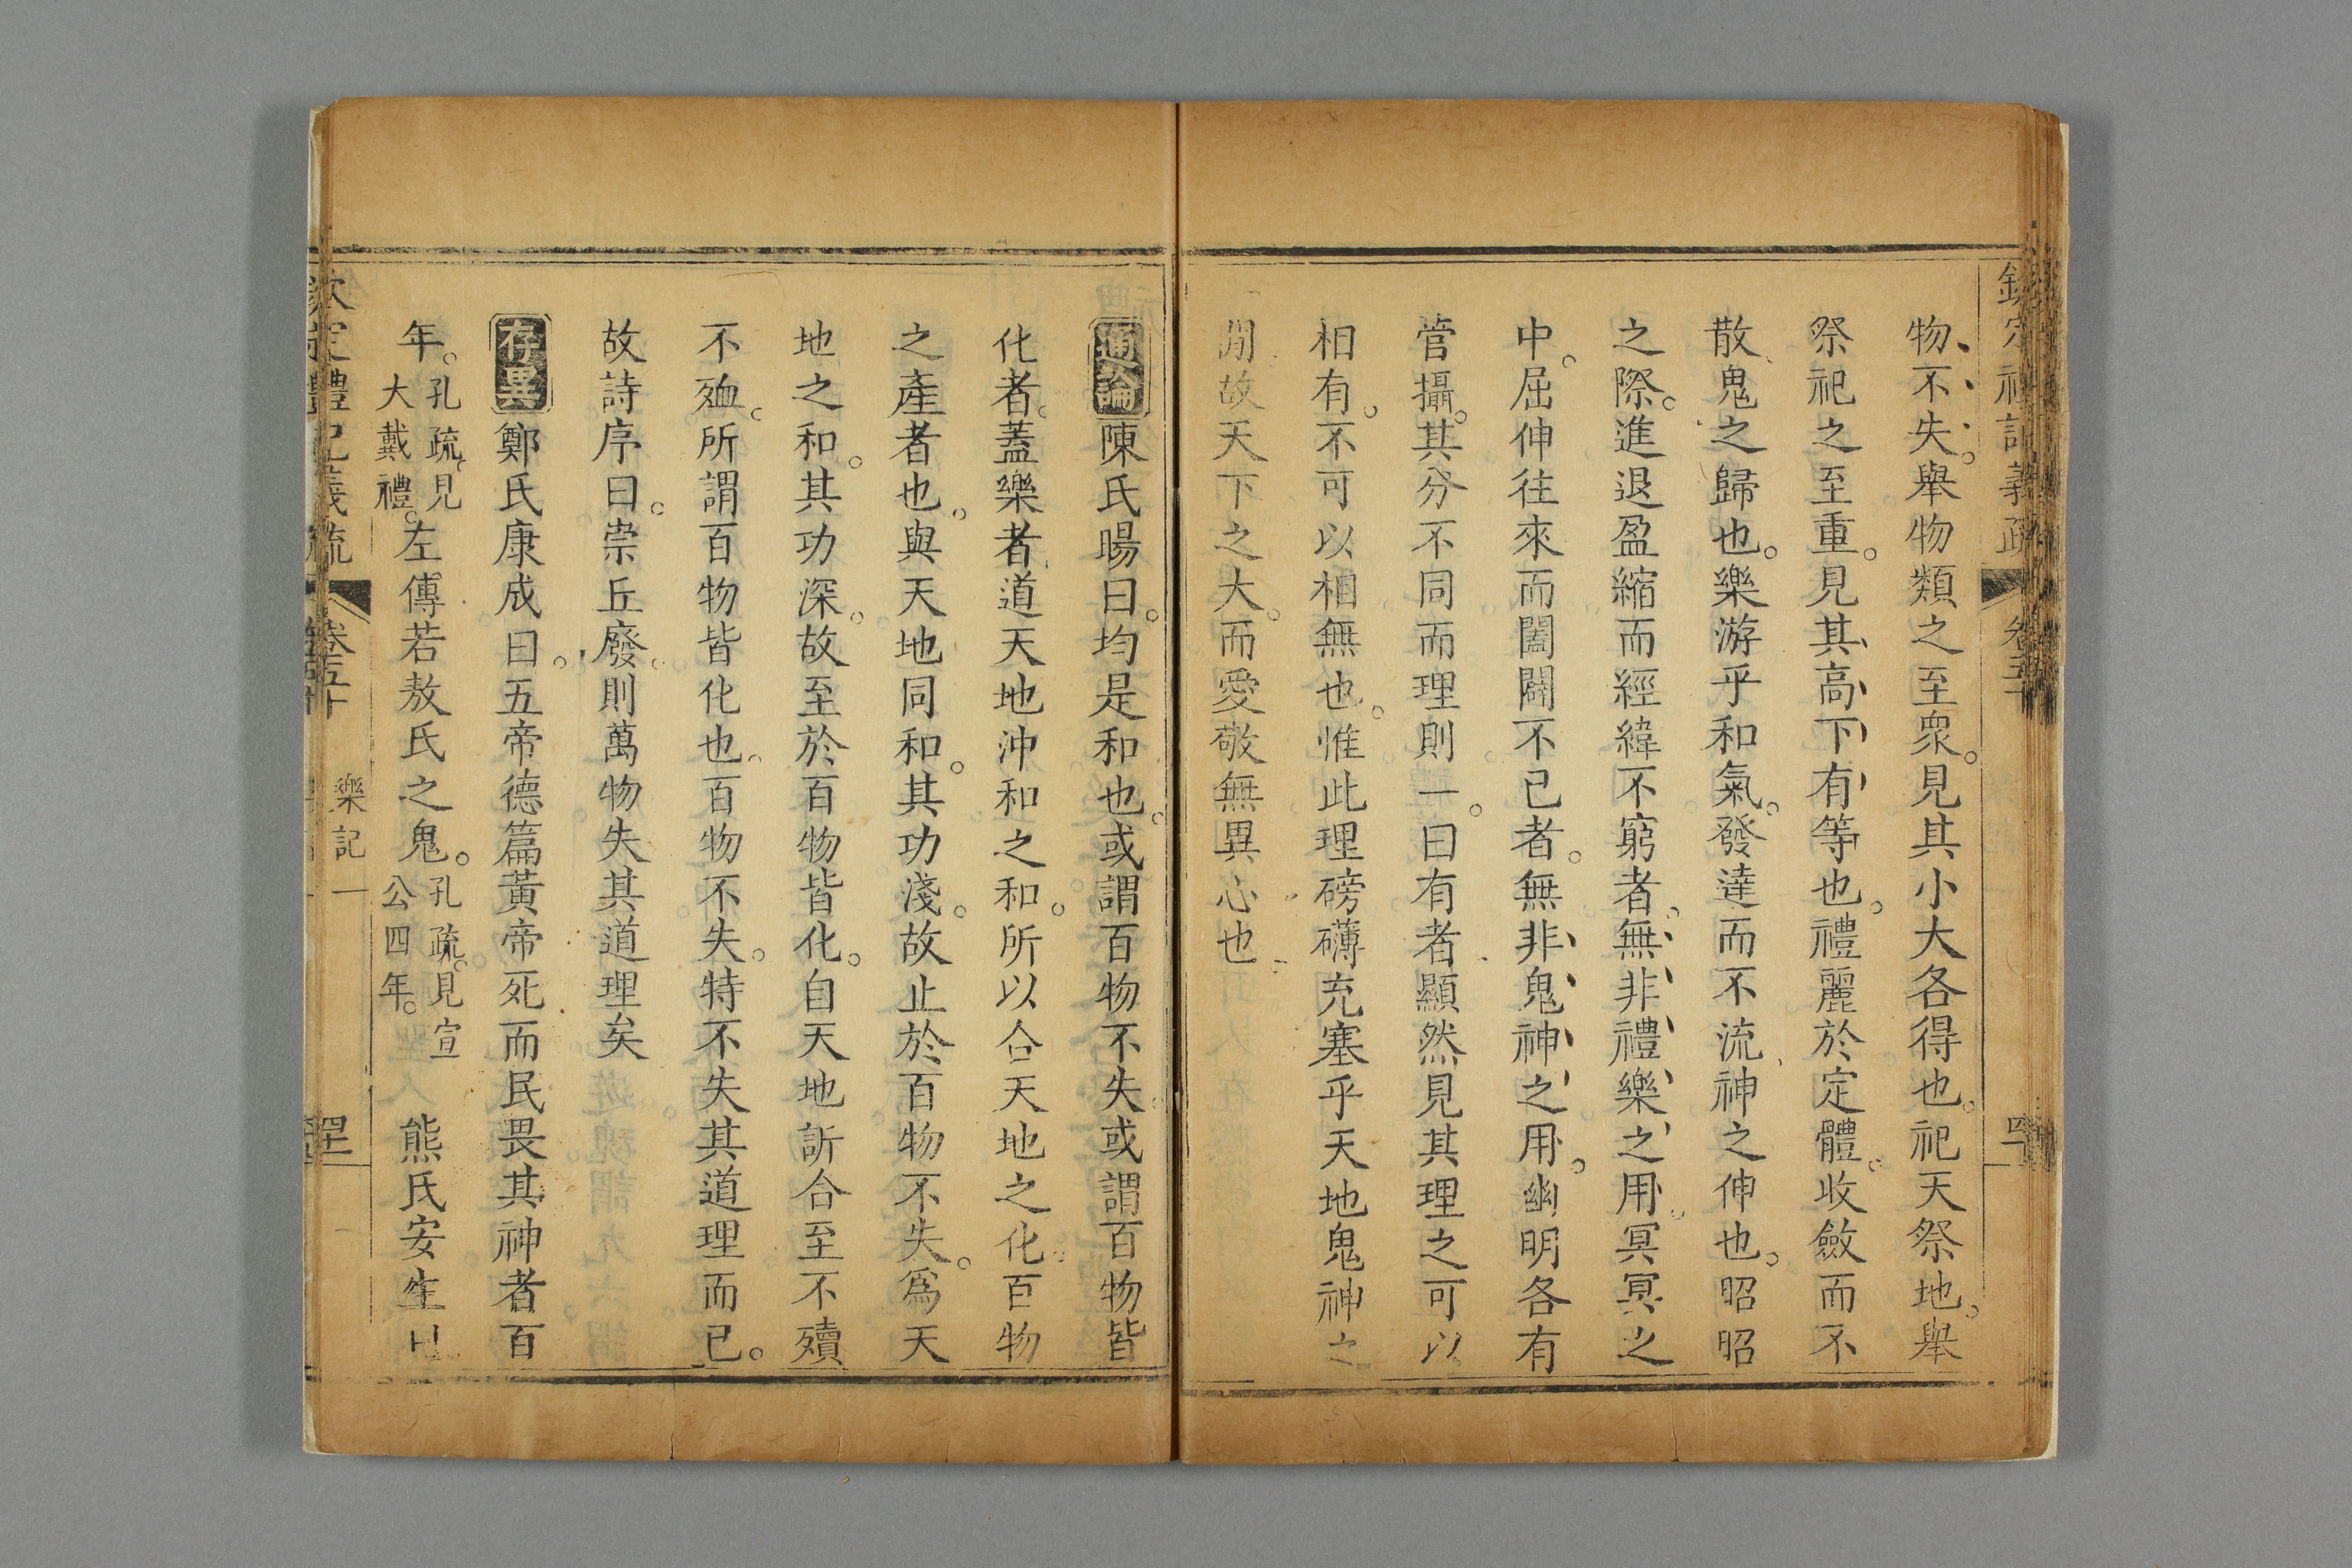 物不失舉物類之至衆。見其小大各得也。祀天祭地。舉
祭祀之至重。見其高下有等也。禮麗於定體。收斂而不
散鬼之歸也。樂游乎和氣。發達而不流神之伸也。昭昭
之際。進退盈縮而經緯不窮者。無非禮樂之用。冥冥之
中。屈伸往來而闔闢不已者。無非鬼神之用。幽明各有
管攝。其分不同而理則一。曰有者顯然見其理之可以
相有。不可以相無也。惟此理磅礴充塞乎天地鬼神之
閒故天下之大。而愛敬無異心也。
通論陳氏暘曰。均是和也。或謂百物不失。或謂百物皆
化者。蓋樂者道天地沖和之和。所以合天地之化。百物
之產者也。與天地同和。其功淺。故止於百物不失。爲天
地之和。其功深。故至於百物皆化。自天地訢合至不殰
不殈。所謂百物皆化也。百物不失。特不失其道理而已。
故詩序曰。崇丘廢。則萬物失其道理矣
存異鄭氏康成曰。五帝德篇黃帝死而民畏其神者百
年。孔疏。見大戴禮。左傳若敖氏之鬼。孔疏。見宣公四年。 熊氏安生曰
欽定禮記義疏 卷五十 樂記 一